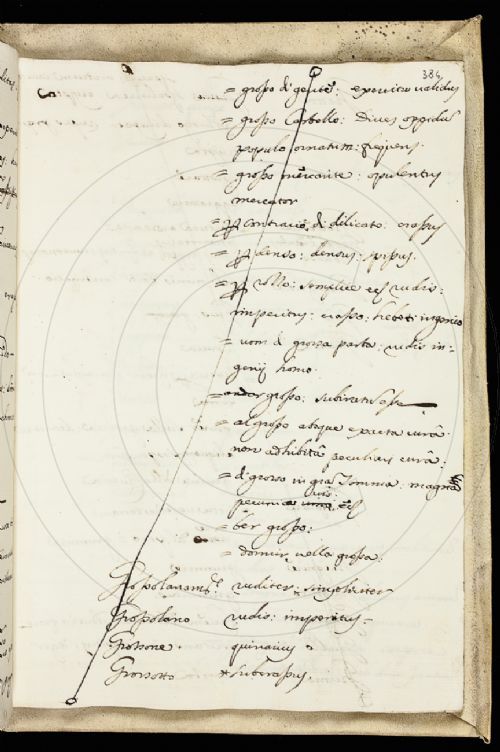 384
= grosso di gente: exercitus validus
= grosso Castello: Dives oppidũ
populo ornatum: frequens.
= grosso mercante: opulentus
mercator
= ꝑ contrario di dilicato: crassus
= ꝑ denso: densus: spissus.
= ꝑ rollo: semplice rudis:
imperitus: crasso: hebeti ingenio
= uom di grossa pasta: rudis in-
genij homo.
= andar grosso: subiratũ esse
= al grosso absque exacta curâ:
non adhibitâ peculiari curâ:
= di grosso in grã Somma: magnâ
pecuniâ
= ber grosso:
= dormir nella grossa:
Grossolanamte. ruditer: simpliciter
Grossolano rudis: imperitus-
Grossone. quinarius
Grossotto subcrassus.